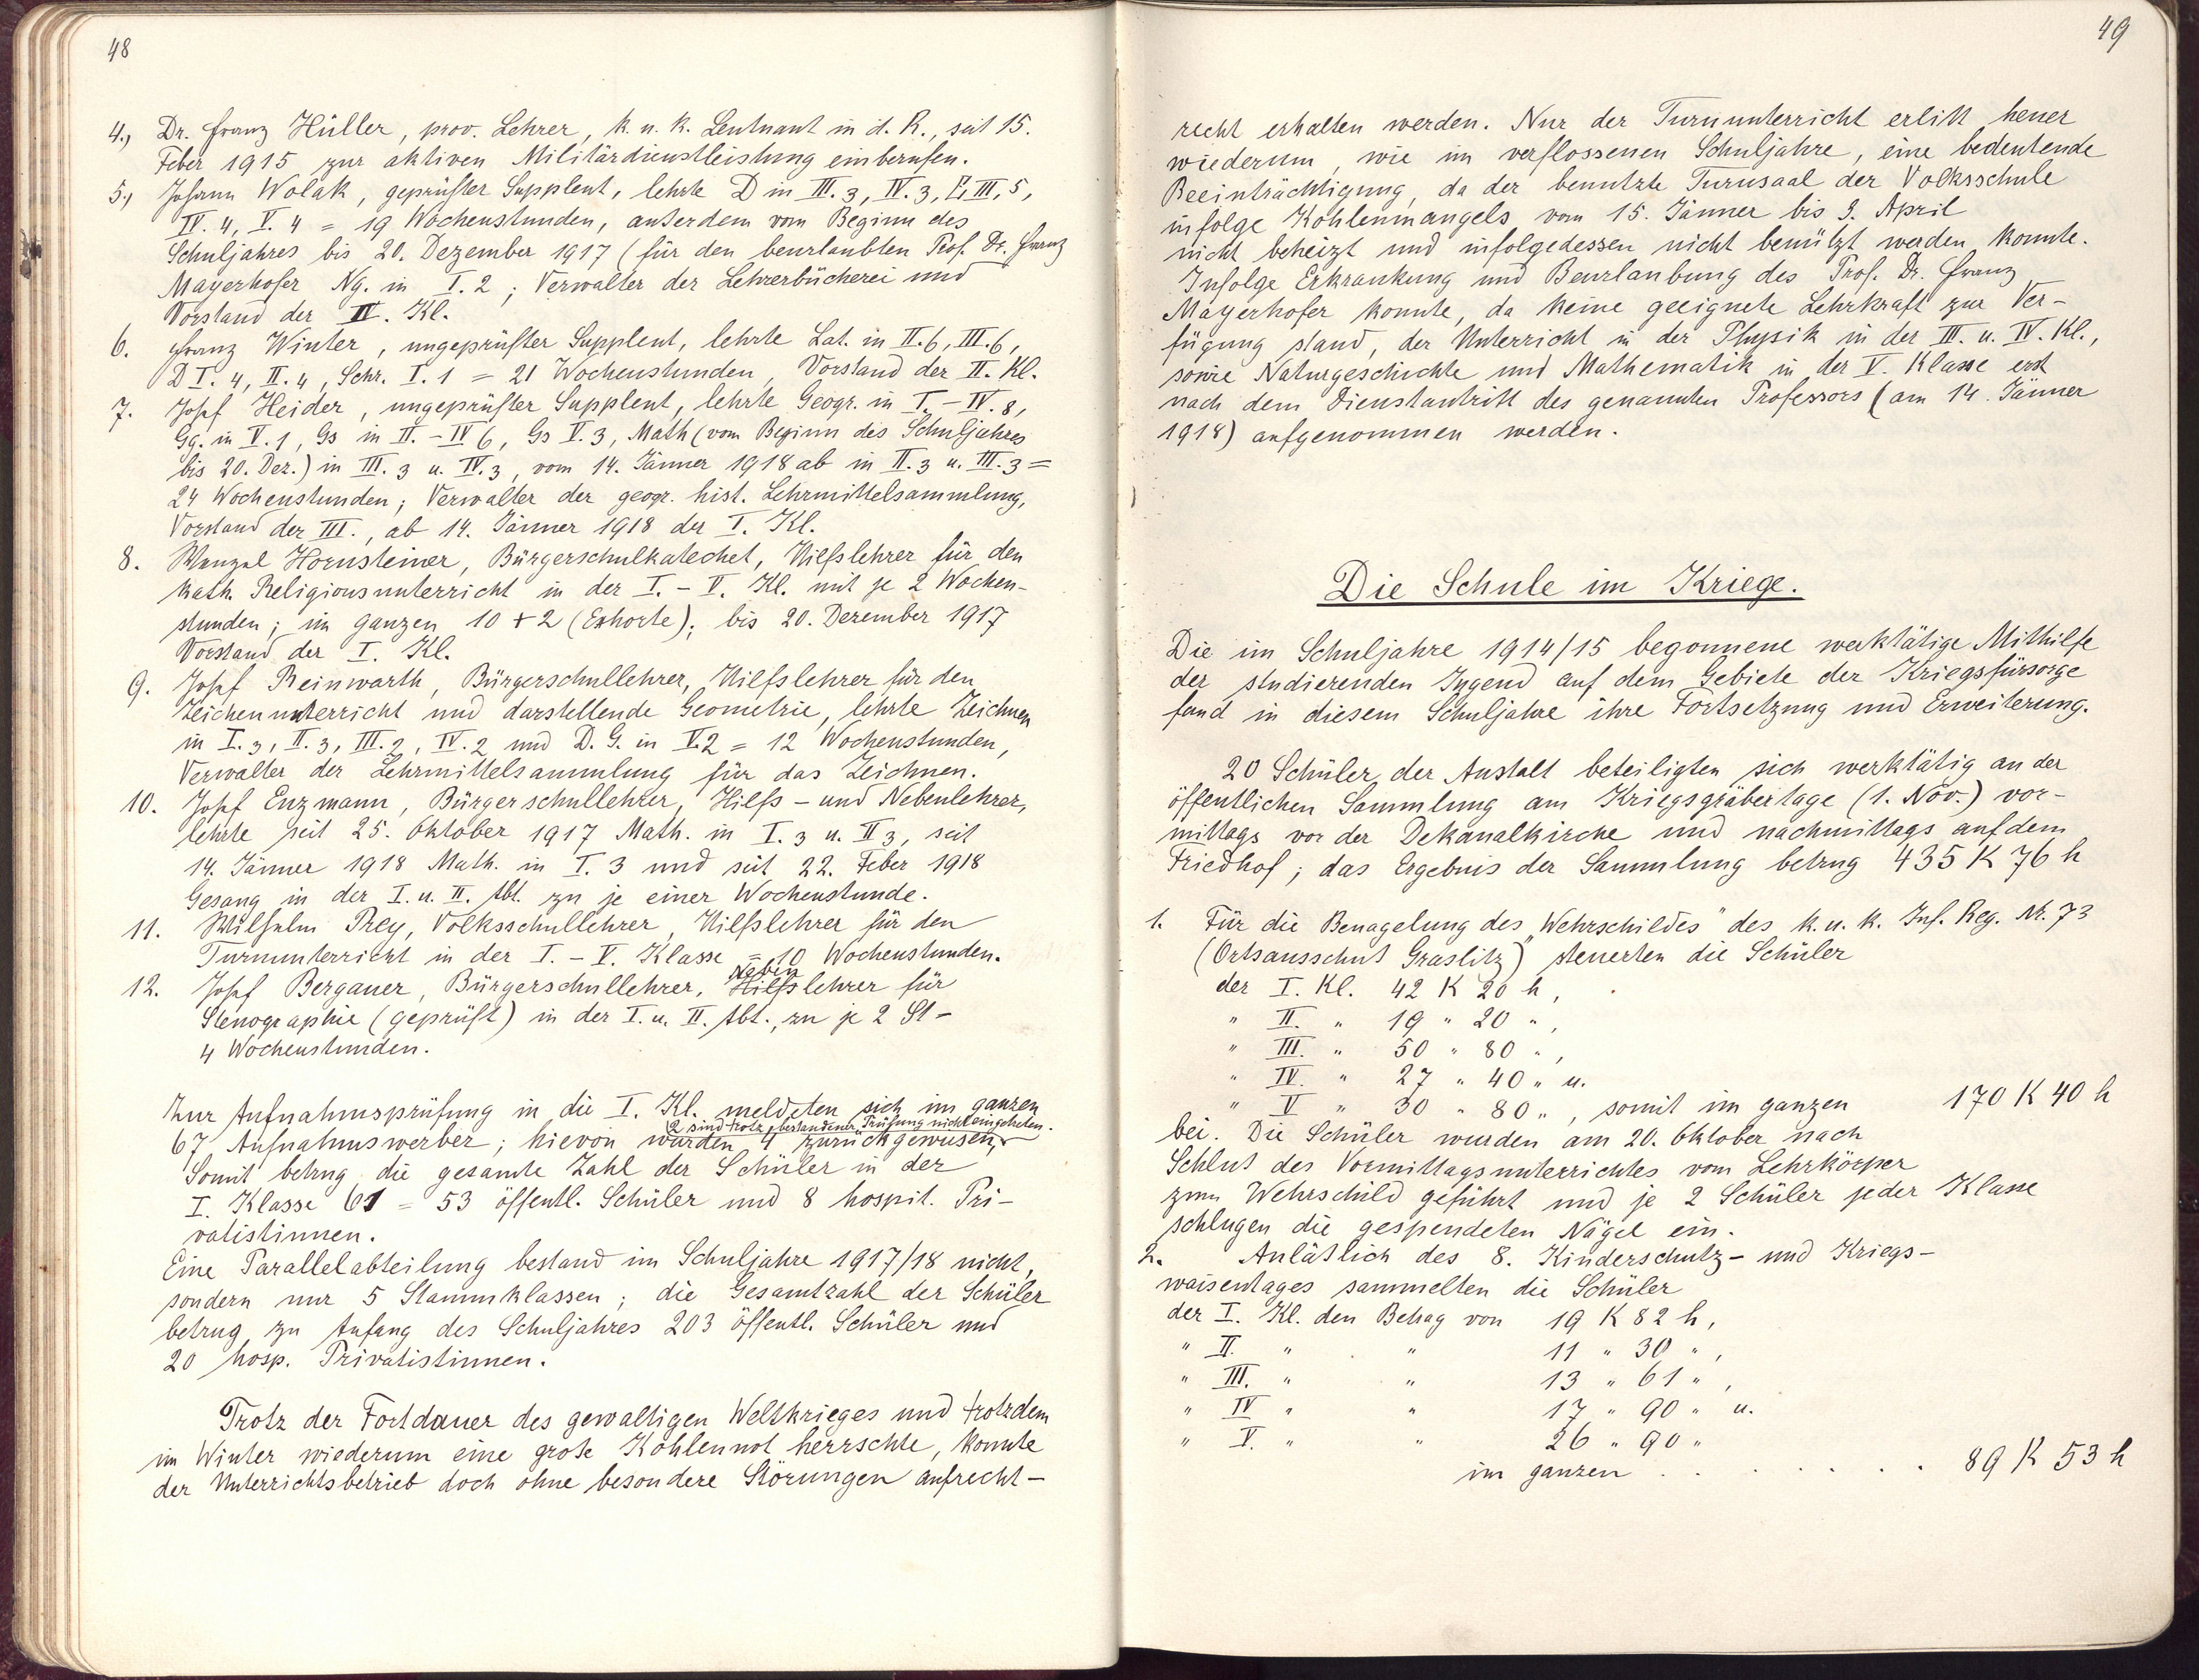 48
4., Dr. Franz Hüller, prov. Lehrer, k. u. k. Leutnant in d. R., seit 15.
Feber 1915 zur aktiven Militärdienstleistung einberufen.
5., Johann Wolak, geprüfter Supplent, lehrte D in III. 3, IV. 3, III. 5,
IV. 4, V. 4 = 19 Wochenstunden, außerdem vom Beginn des
Schuljahres bis 20. Dezember 1917 (für den beurlaubten Prof. Dr. Franz
Mayerhofer Ng. in I. 2; Verwalter der Lehrerbücherei und
Vorstand der IV. Kl.
6. Franz Winter, ungeprüfter Supplent, lehrte Lat. in II. 6, III. 6,
D I. 4, II. 4, Schr. I. 1 = 21 Wochenstunden, Vorstand der II. Kl.
7. Josef Heider, ungeprüfter Supplent, lehrte Geogr. in I. - IV. 8,
Gg. in V. 1, Gs in II. - IV 6, Gs V. 3, Math (vom Beginn des Schuljahres
bis 20. Dez.) in III. 3 u. IV. 3, vom 14. Jänner 1918 ab in II. 3 u. III. 3 =
24 Wochenstunden; Verwalter der geogr. hist. Lehrmittelsammlung,
Vorstand der III., ab 14. Jänner 1918 der I. Kl.
8. Wenzel Hornsteiner, Bürgerschulkatechet, Hilfslehrer für den
kath. Religionsunterricht in der I. - V. Kl. mit je 2 Wochen-
stunden; im ganzen 10 + 2 (Exhorte); bis 20. Dezember 1917
Vorstand der I. Kl.
9. Josef Reinwarth, Bürgerschullehrer, Hilfslehrer für den
Zeichenunterricht und darstellende Geometrie, lehrte Zeichnen
in I. 3, II. 3, III. 2, IV. 2 und D. G. in V. 2 = 12 Wochenstunden,
Verwalter der Lehrmittelsammlung für das Zeichnen.
10. Josef Enzmann, Bürgerschullehrer, Hilfs- und Nebenlehrer,
lehrte seit 25. Oktober 1917 Math. in I. 3 u. II 3, seit
14. Jänner 1918 Math. in I. 3 und seit 22. Feber 1918
Gesang in der I. u. II. Abt. zu je einer Wochenstunde.
11. Wilhelm Prey, Volksschullehrer, Hilfslehrer für den
Turnunterricht in der I. - V. Klasse = 10 Wochenstunden.
Neben
12. Josef Bergauer, Bürgerschullehrer, Hilfslehrer für
Stenographie (geprüft) in der I. u. II. Abt., zu je 2 St -
4 Wochenstunden.
Zur Aufnahmsprüfung in die I. Kl. meldeten sich im ganzen
2 sind trotz bestandener Prüfung nicht eingetreten.
67 Aufnahmswerber; hievon wurden 4 zurückgewiesen,
Somit betrug die gesamte Zahl der Schüler in der
I. Klasse 61 = 53 öffentl. Schüler und 8 hospit. Pri-
vatistinnen.
Eine Parallelabteilung bestand im Schuljahre 1917/18 nicht,
sondern nur 5 Stammklassen; die Gesamtzahl der Schüler
betrug zu Anfang des Schuljahres 203 öffentl. Schüler und
20 hosp. Privatistinnen.
Trotz der Fortdauer des gewaltigen Weltkrieges und trotzdem
im Winter wiederum eine große Kohlennot herrschte, konnte
der Unterrichtsbetrieb doch ohne besondere Störungen aufrecht-
49
recht erhalten werden. Nur der Turnunterricht erlitt heuer
wiederum, wie im verflossenen Schuljahre, eine bedeutende
Beeinträchtigung, da der benutzte Turnsaal der Volksschule
infolge Kohlenmangels vom 15. Jänner bis 3. April
nicht beheizt und infolgedessen nicht benützt werden konnte.
Infolge Erkrankung und Beurlaubung des Prof. Dr. Franz
Mayerhofer konnte, da keine geeignete Lehrkraft zur Ver-
fügung stand, der Unterricht in der Physik in der III. u. IV. Kl.,
sowie Naturgeschichte und Mathematik in der V. Klasse erst
nach dem Dienstantritt des genannten Professors (am 14. Jänner
1918) aufgenommen werden.
Die Schule im Kriege.
Die im Schuljahre 1914/15 begonnene werktätige Mithilfe
der studierenden Jugend auf dem Gebiete der Kriegsfürsorge
fand in diesem Schuljahre ihre Fortsetzung und Erweiterung.
20 Schüler der Anstalt beteiligten sich werktätig an der
öffentlichen Sammlung am Kriegsgräbertage (1. Nov.) vor-
mittags vor der Dekanalkirche und nachmittags auf dem
Friedhof; das Ergebnis der Sammlung betrug 435 K 76 h
1. Für die Benagelung des „Wehrschildes" des k. u. k. Inf. Reg. Nr. 73
(Ortsausschuß Graslitz) steuerten die Schüler
der I. Kl. 42 K 20 h,
" II. " 19 " 20 ",
" III. " 50 " 80 ",
" IV. " 27 " 40 " u.
" V " 30 " 80 ", somit im ganzen 170 K 40 h
bei. Die Schüler wurden am 20. Oktober nach
Schluß des Vormittagsunterrichtes vom Lehrkörper
zum Wehrschild geführt und je 2 Schüler jeder Klasse
schlugen die gespendeten Nägel ein.
2. Anläßlich des 8. Kinderschutz- und Kriegs-
waisentages sammelten die Schüler
der I. Kl. den Betrag von 19 K 82 h,
" II. " " 11 " 30 ",
" III. " " 13 " 61 ",
" IV " " 17 " 90 " u.
" V. " " 26 " 90 "
im ganzen . . . . . . . 89 K 53 h